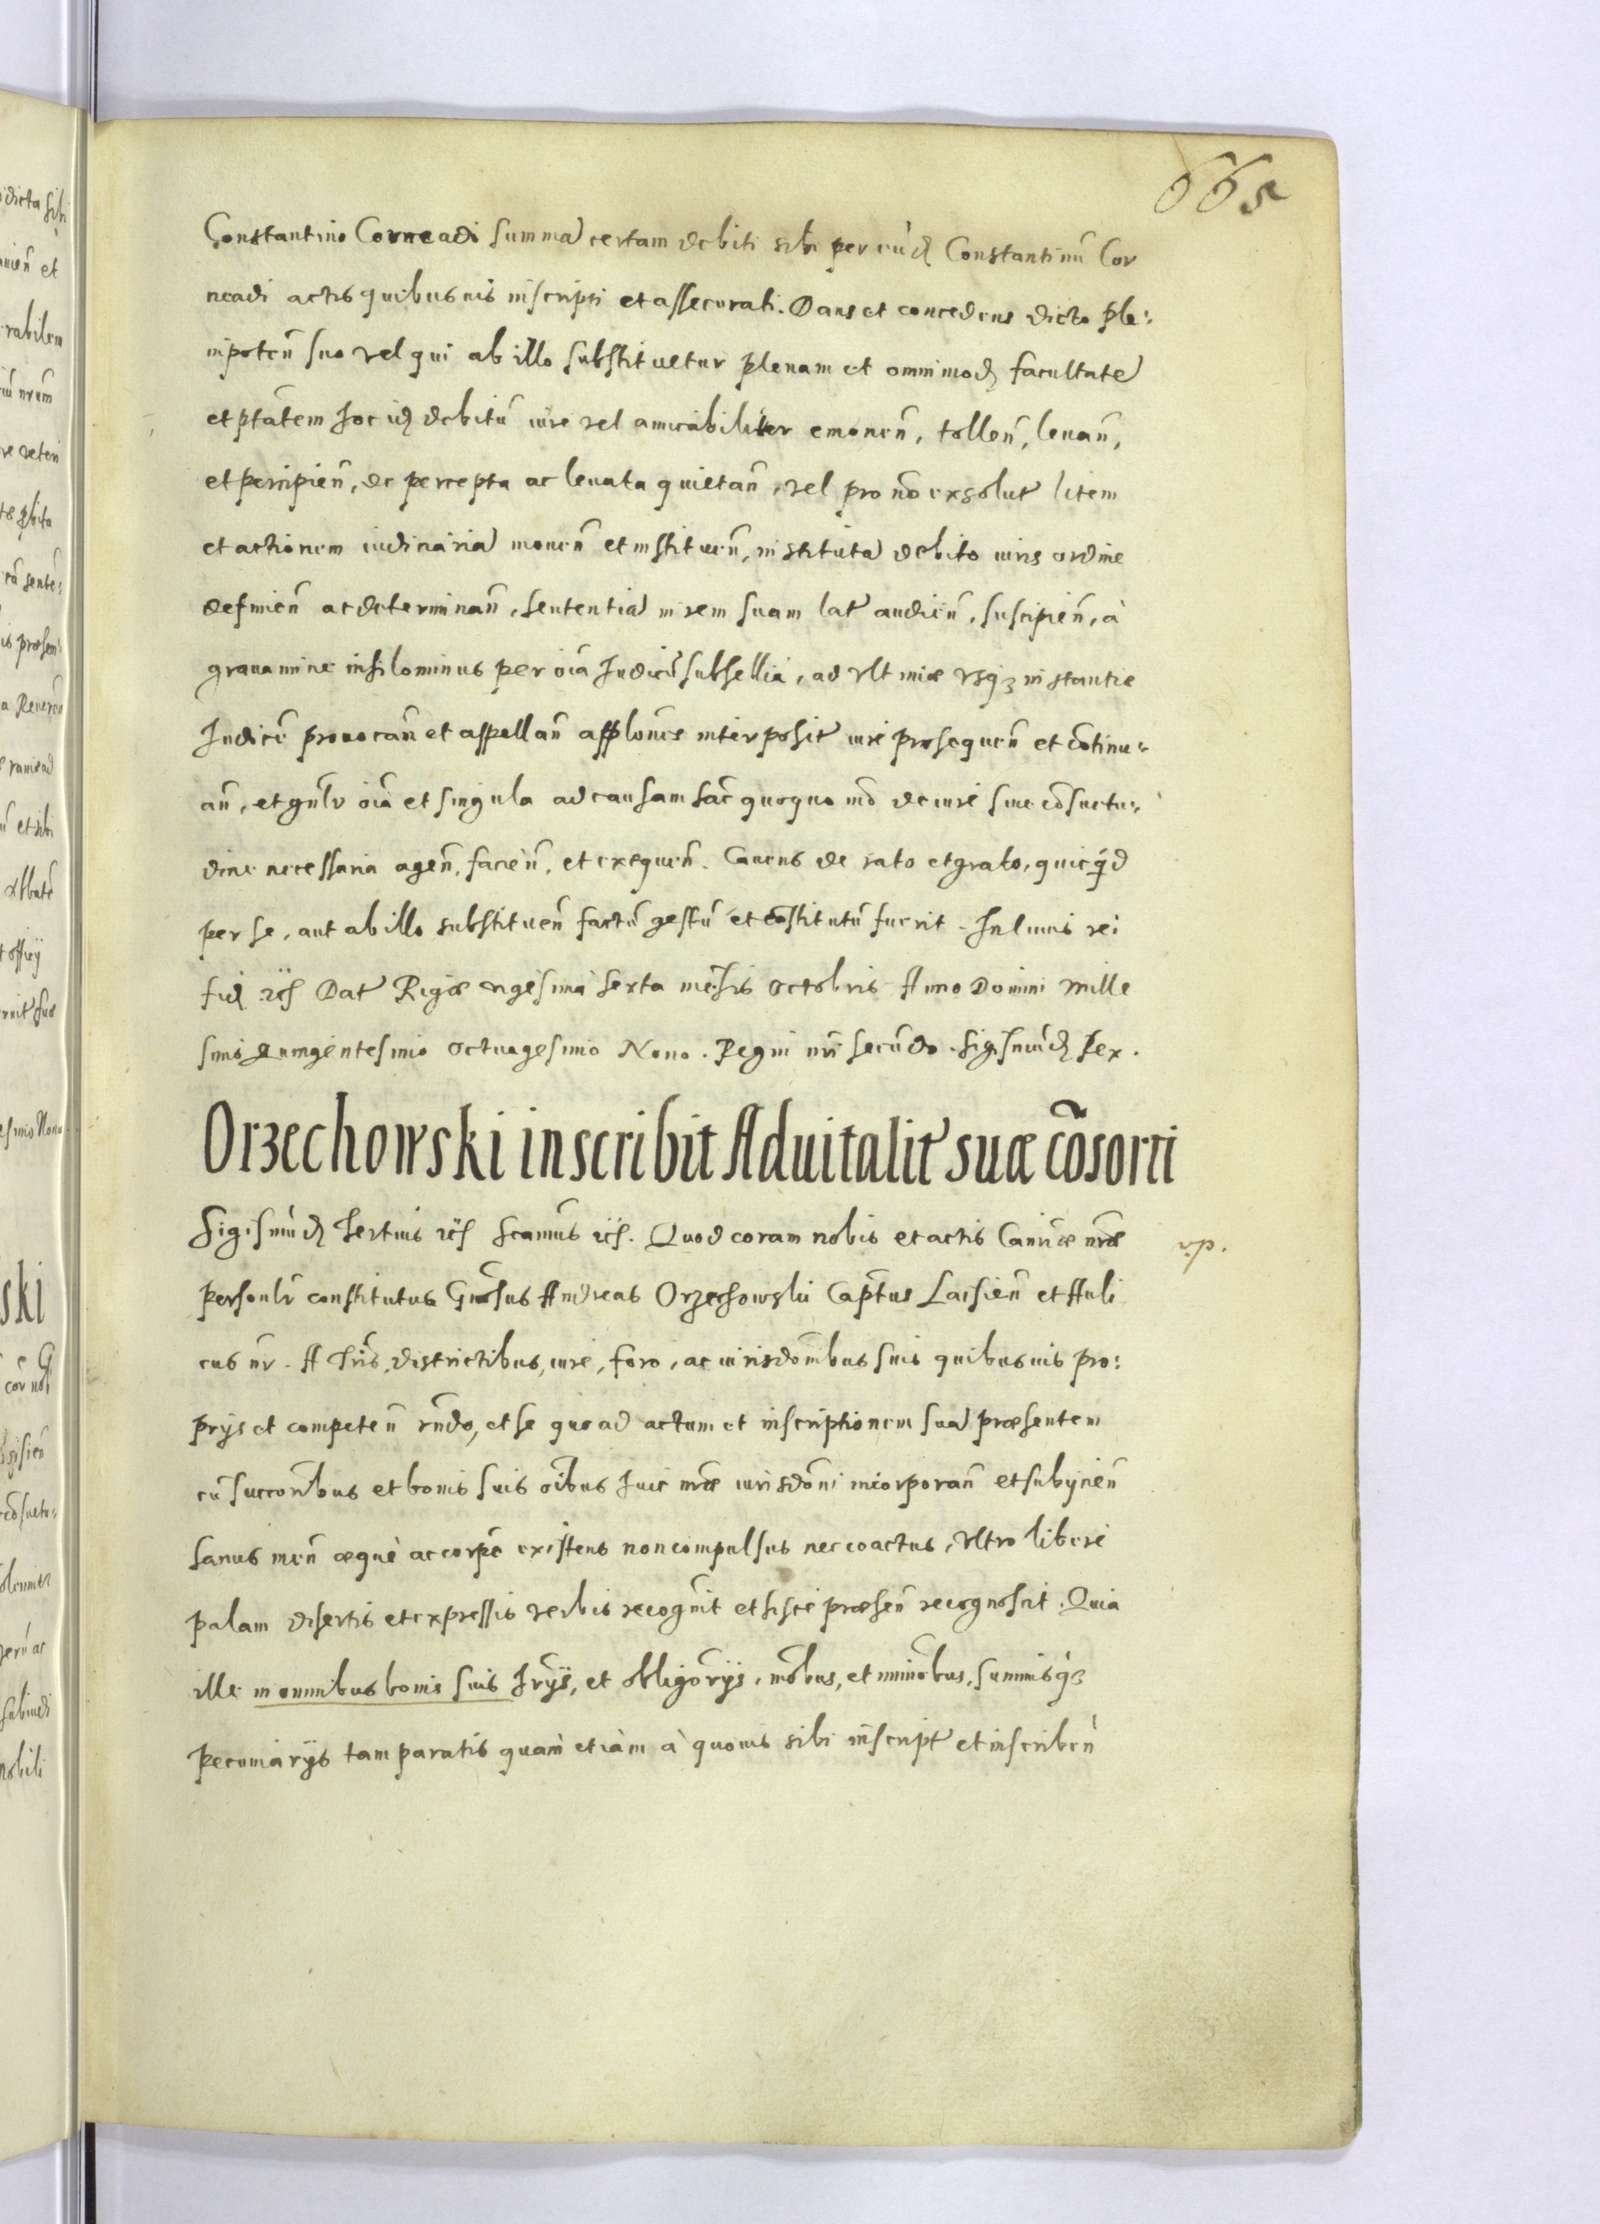 665
Constantino Corneadi summã certam debiti sibi per eũd Constantinũ Cor
neadi actis quibusuis inscripti et assecurati. Dans et concedens dicto ple:
nipoteñ suo vel qui ab illo substituetur plenam et omnimod facultatẽ
et ptãtem hoc id debitũ iure vel amicabiliter emoneñ, tolleñ, leuañ,
et percipieñ, de percepta ac leuata quietañ, vel pro nõ exsolut litem
et actionem iudiciariã moueñ et institueñ, institutã debito iuris ordine
definieñ ac determinañ, sententiã in rem suam lat audieñ, suscipieñ, à
grauamine nihilominus per oĩa Iudicũ subsellia, ad vltimæ vsq3 instantiæ
Iudicẽ prouocañ et appellañ applõnes interposit iure prosequeñ et cõtinu:
añ, et gñlr oĩa et singula ad causam hãc quoquo mõ de iure siue cõsuetu:
dine necessaria ageñ, facieñ, et exequeñ. Cauens de rato et grato, quicq̃d
per se, aut ab illo substitueñ factũ gestũ et cõstitutũ fuerit. In cuius rei
fid etc Dat Rigæ vigesima sexta mẽsis Octobris Anno Domini Mille
simo Quingentesimo Octuagesimo Nono. Regni nri secũdo. Sigismũd Rex.
Orzechowski inscribit Aduitalit suæ cõsorti
Sigismũd Tertius etc Scamus etc. Quod coram nobis et actis Cancriæ nræ
v.p.
personlr constitutus Gnosus Andreas Orzechowski Captus Laisieñ et Auli
cus nr. A Tris, districtibus, iure, foro, ac iurisdõnibus suis quibusuis pro:
prijs et competeñ rñdo, et se quoad actum et inscriptionem suã præsentem
cũ succoribus et bonis suis oĩbus huic nræ iurisdõni incorporañ et subijcieñ
sanus meñ æquè ac corpe existens non compulsus nec coactus, vltro liberè
palam disertis et expressis verbis recognuit et hisce præseñ recognoscit. Quia
ille in omnibus bonis suis hrijs, et obligorijs, mobus, et immobus, summisq3
pecuniarijs tam paratis quam etiàm à quouis sibi inscript et inscribeñ